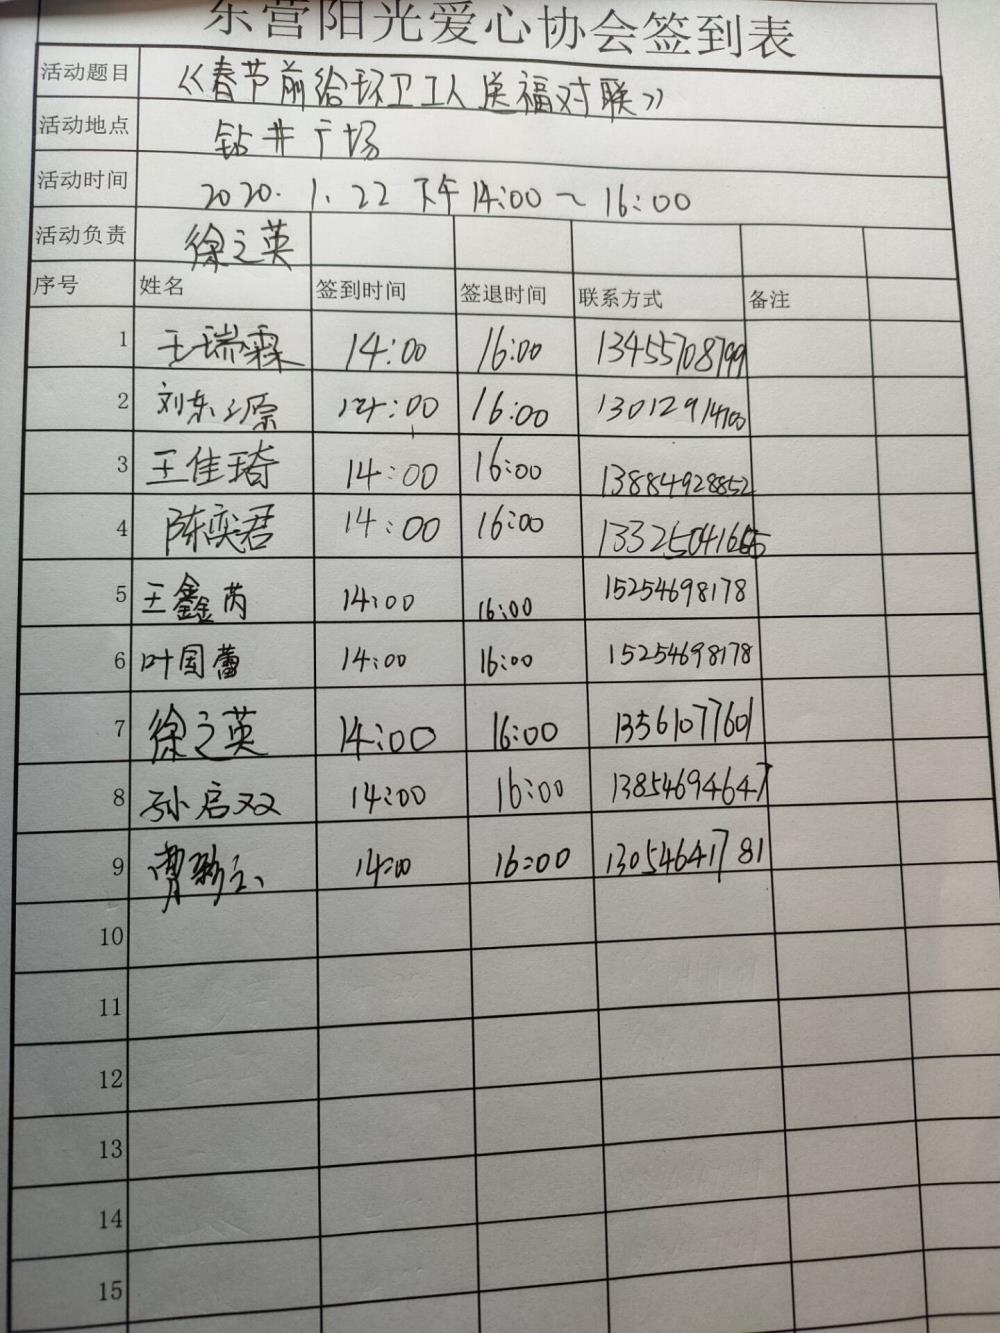 东营阳光爱心协会签到表
活动题目 《春节前给环卫工人送福对联》
活动地点 钻井广场
活动时间 2020.1.22 下午14:00~16:00
活动负责 徐之英
序号 姓名 签到时间 签退时间 联系方式 备注
1 王瑞霖 14:00 16:00 13455708799
2 刘东源 14:00 16:00 13012914100
3 王佳琦 14:00 16:00 13884928852
4 陈奕君 14:00 16:00
5 王鑫芮 14:00 16:00 15254698178
6 叶国蕾 14:00 16:00 15254698178
7 徐之英 14:00 16:00 13561077601
8 孙启双 14:00 16:00 13854694647
9 14:00 16:00 13054641781
10
11
12
13
14
15